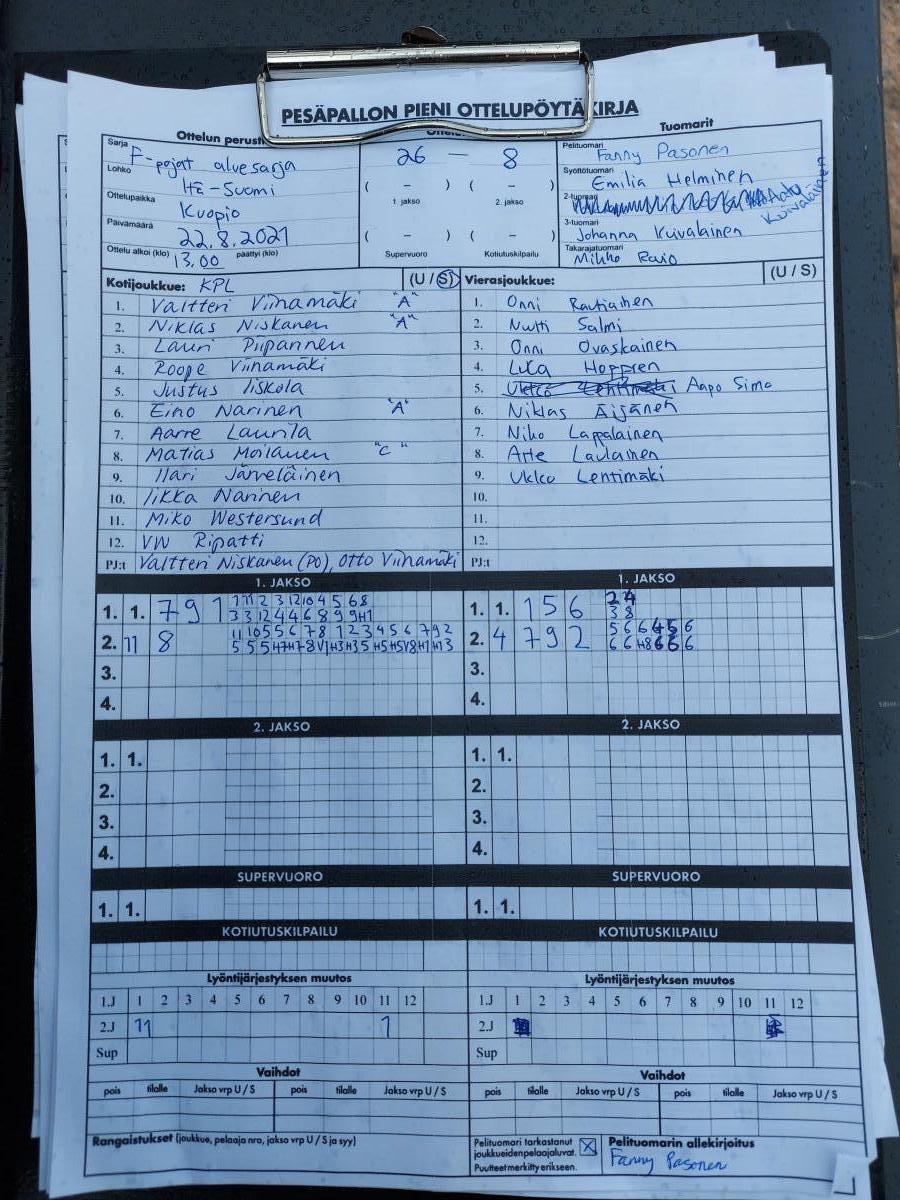 PESÄPALLON PIENI OTTELUPÖYTÄKIRJA
Ottelun perust
Tuomarit
Sarja F-pojat aluesarja
Lohko Itä-Suomi
Ottelupaikka Kuopio
Päivämäärä 22.8.2021
Ottelu alkoi (klo) 13.00 päättyi (klo)
26 – 8
( – ) ( – )
1. jakso 2. jakso
( – ) ( – )
Supervuoro Kotiutuskilpailu
Pelituomari Fanny Pasonen
Syöttötuomari Emilia Helminen
2-tuomari Kuivalainen
3-tuomari Johanna Kuivalainen
Takarajatuomari Mikko Ravio
Kotijoukkue: KPL (U / S)
1. Valtteri Viinamäki "A"
2. Niklas Niskanen "A"
3. Lauri Piipannen
4. Roope Viinamäki
5. Justus Iiskola
6. Eino Narinen "A"
7. Aarre Laurila
8. Matias Moilanen "C"
9. Ilari Järveläinen
10. Iikka Narinen
11. Miko Westersund
12. VW Ripatti
PJ:t Valtteri Niskanen (PO), Otto Viinamäki
Vierasjoukkue: (U / S)
1. Onni Rautiainen
2. Nutti Salmi
3. Onni Ovaskainen
4. Luca Hoppren
5. Aapo Simo
6. Niklas Äijänen
7. Niko Lappalainen
8. Atte Laulainen
9. Ukko Lehtimäki
10.
11.
12.
PJ:t
1. JAKSO
1. 1. 7 9 1
2. 11 8
3.
4.
1. JAKSO
1. 1. 1 5 6 2 4
3 8
2. 4 7 9 2
3.
4.
2. JAKSO
1. 1.
2.
3.
4.
2. JAKSO
1. 1.
2.
3.
4.
SUPERVUORO
1. 1.
SUPERVUORO
1. 1.
KOTIUTUSKILPAILU
KOTIUTUSKILPAILU
Lyöntijärjestyksen muutos
1.J 1 2 3 4 5 6 7 8 9 10 11 12
2.J 11 1
Sup
Lyöntijärjestyksen muutos
1.J 1 2 3 4 5 6 7 8 9 10 11 12
2.J
Sup
Vaihdot
pois tilalle Jakso vrp U / S pois tilalle Jakso vrp U / S
Vaihdot
pois tilalle Jakso vrp U / S pois tilalle Jakso vrp U / S
Rangaistukset (joukkue, pelaaja nro, jakso vrp U / S ja syy)
Pelituomari tarkastanut
joukkueiden pelaajaluvat.
Puutteet merkitty erikseen.
Pelituomarin allekirjoitus
Fanny Pasonen